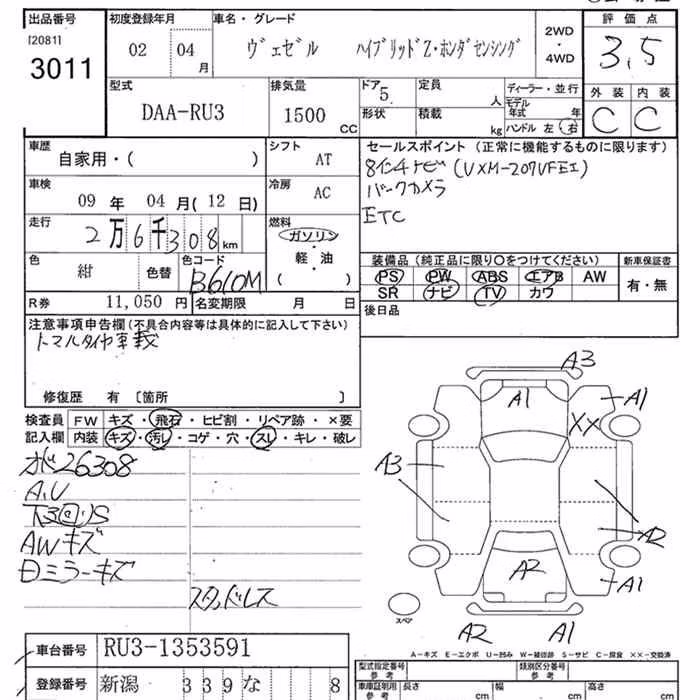 出品番号 初度登録年月 車名・グレード 評価点
[2081]
3011 02 04月 ヴェゼル ハイブリッドZ・ホンダセンシング 2WD・4WD 3,5
型式 排気量 ドア 5 定員 人 ディーラー・並行 外装 内装
DAA-RU3 1500 CC 形状 積載 kg モデル年式 年 C C
ハンドル 左 右
車歴 シフト セールスポイント (正常に機能するものに限ります)
自家用・( ) AT 8インチナビ (VXM-207VFEi)
車検 冷房 バックカメラ
09年 04月(12日) AC ETC
走行 燃料
2万6千308km ガソリン・軽・油 ( )
色 色コード 装備品 (純正品に限り○をつけてください) 新車保証書
紺 色替 B610M PS PW ABS エアB AW 有・無
SR ナビ TV カワ
R券 11,050円 名変期限 月 日 後日品
注意事項申告欄(不具合内容等は具体的に記入して下さい)
修復歴 有 [箇所 ]
検査員 FW キズ・飛石・ヒビ割・リペア跡・×要
記入欄 内装 キズ・汚レ・コゲ・穴・スレ・キレ・破レ
26308
A,U
AWキズ
ミラーキズ
スタッドレス
A3
A1 A1
XX
A3
A2
A2 A1
スペア
A2 A1
A-キズ E-エクボ U-凹み W-補修跡 S-サビ C-腐食 XX-交換済
車台番号 RU3-1353591
登録番号 新潟 339 な 8
型式指定番号 参考 類別区分番号 参考
車庫証明用 参考 長さ cm 幅 cm 高さ cm